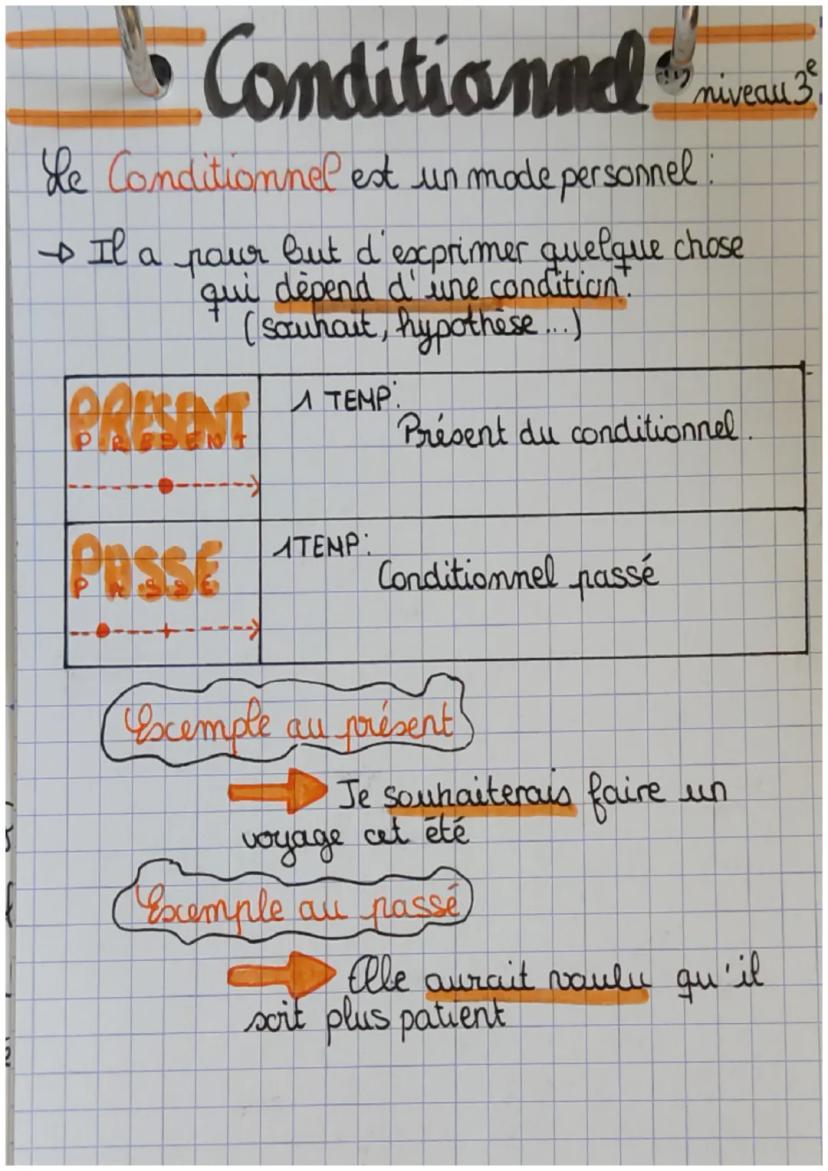 Conditionnel niveau 3e
Le Conditionnel est un mode personnel :
→ Il a pour but d'exprimer quelque chose
qui dépend d'une condition.
(souhait, hypothèse...)
PRESENT
PRESENT
1 TEMP:
Présent du conditionnel.
PASSE
PASSE
1 TEMP:
Conditionnel passé
Exemple au présent
Je souhaiterais faire un
voyage cet été
Exemple au passé
Elle aurait voulu qu'il
soit plus patient